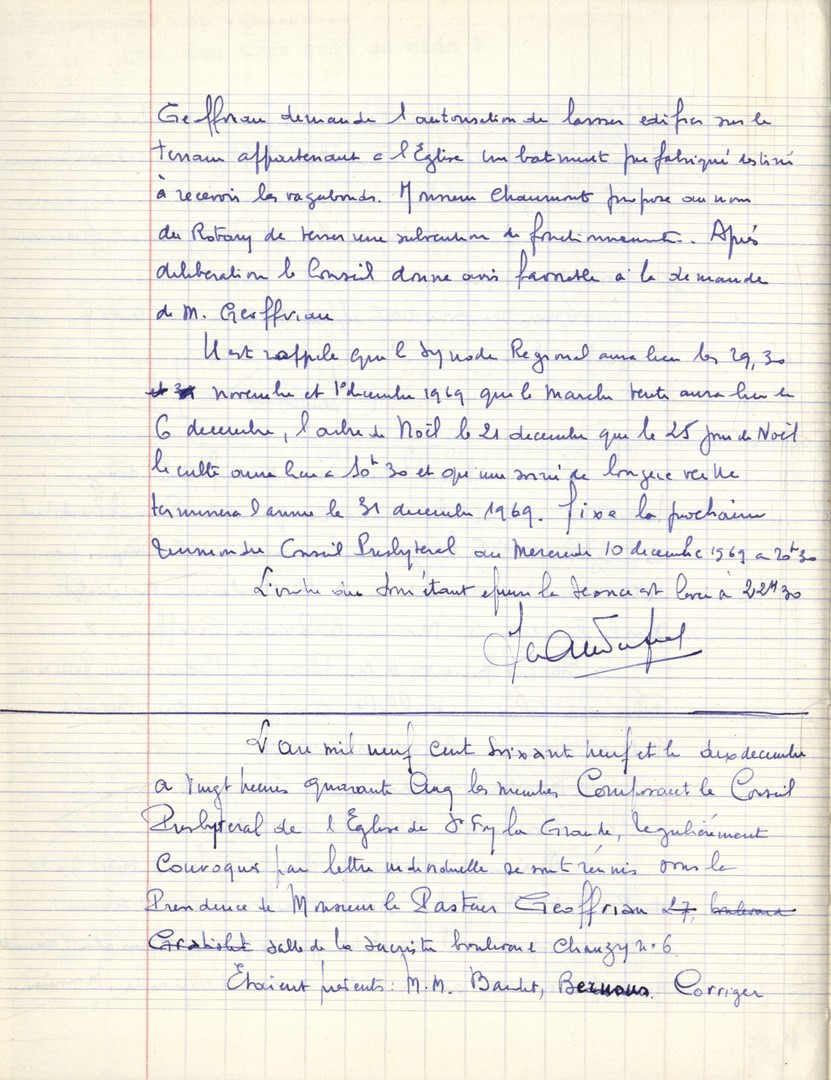 Geoffriau demande l'autorisation de laisser édifier sur le
terrain appartenant à l'Église un batiment prefabriqué destiné
à recevoir les vagabonds. Monsieur Chaumont propose au nom
du Rotary de verser une subvention de fonctionnement. Après
deliberation le Conseil donne avis favorable à la demande
de M. Geoffriau
Il est rappele que le Synode Regional aura lieu les 29, 30
novembre et 1° decembre 1969 que le Marche vente aura lieu le
6 decembre, l'arbre de Noël le 21 decembre que le 25 jour de Noël
le culte aura lieu a 10h30 et qu'une soiree de longue veille
terminera l'annee le 31 decembre 1969. fixe la prochaine
reunion du Conseil Presbyteral au Mercredi 10 decembre 1969 a 20h30
L'ordre du jour étant epuise la seance est levee à 22H30
L'an mil neuf cent soixante neuf et le dix decembre
a vingt heures quarante cinq les membres Composant le Conseil
Presbyteral de l'Eglise de Ste Foy la Grande, regulièrement
Convoques par lettre individuelle se sont réunis sous la
Presidence de Monsieur le Pasteur Geoffriau 27, boulevard
Gratiolet salle de la sacristie boulevard Chanzy n° 6
Etaient présents: M.M. Baudet, Corriger